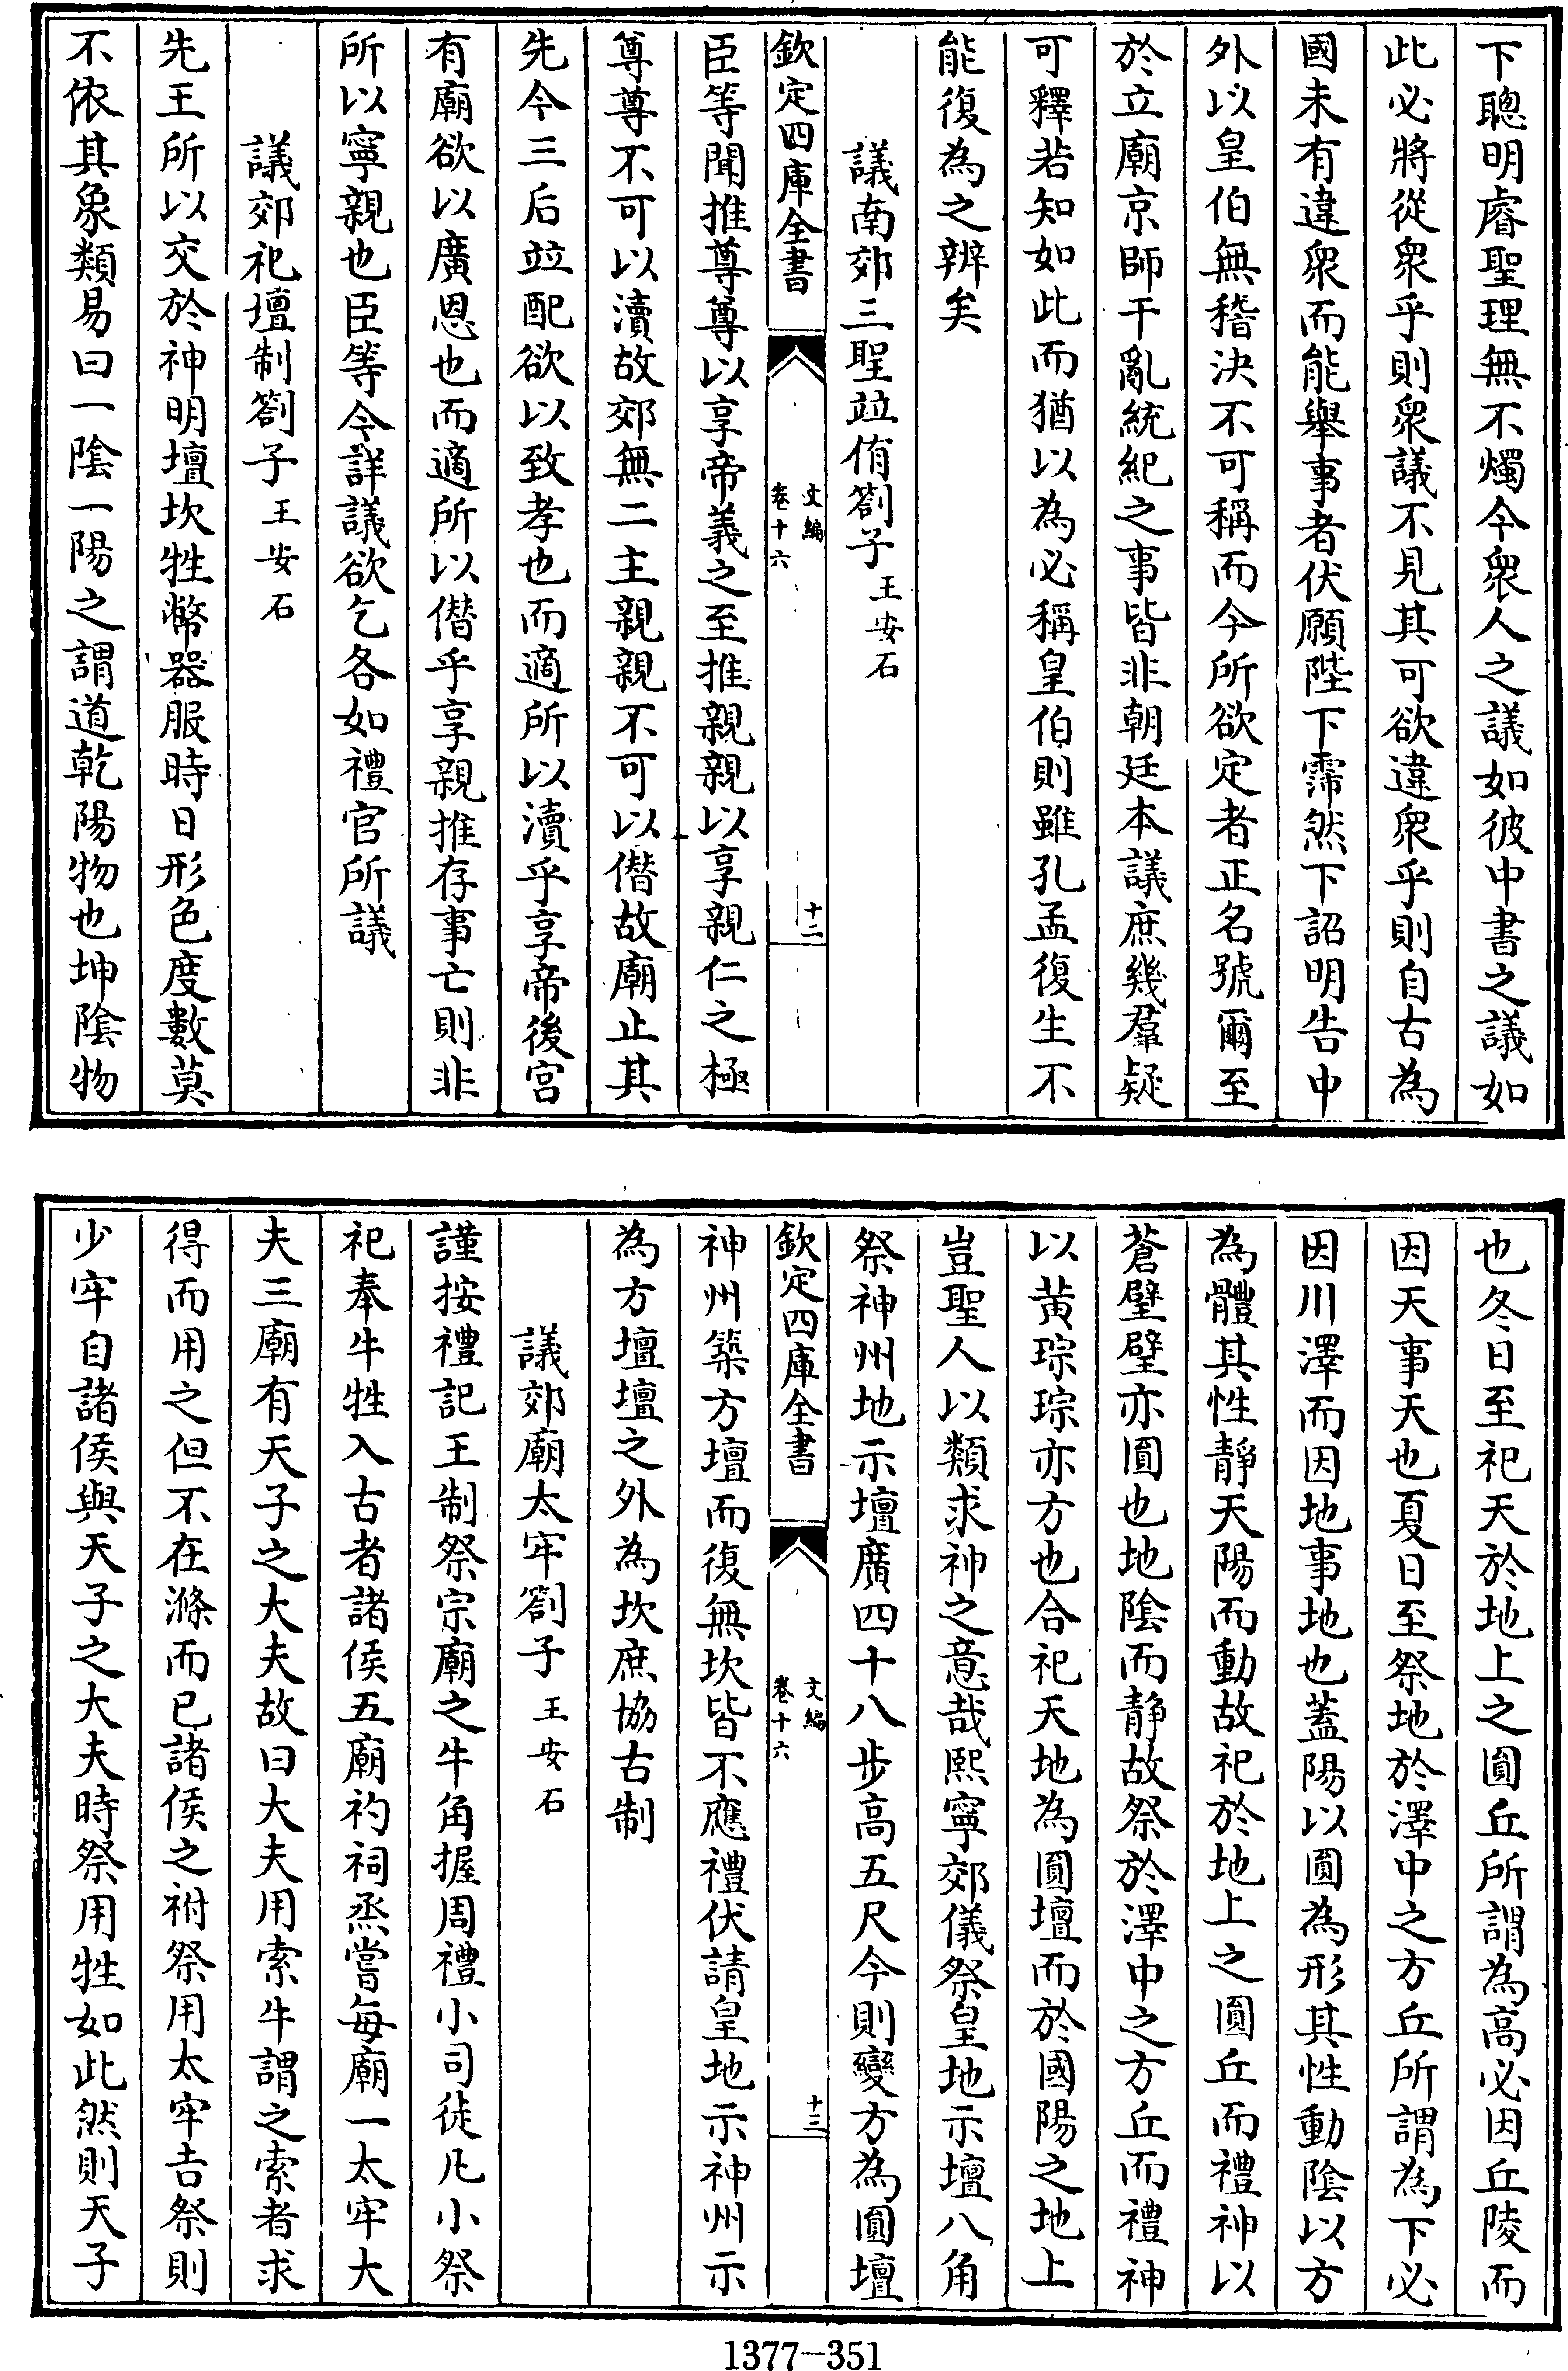 下聰明睿聖理無不燭今衆人之議如彼中書之議如
此必將從衆乎則衆議不見其可欲違衆乎則自古為
國未有違衆而能舉事者伏願陛下霈然下詔明告中
外以皇伯無稽決不可稱而今所欲定者正名號爾至
於立廟京師干亂統紀之事皆非朝廷本議庶幾羣疑
可釋若知如此而猶以為必稱皇伯則雖孔孟復生不
能復為之辨矣
議南郊三聖竝侑劄子王安石
欽定四庫全書
文編
卷十六
十二
臣等聞推尊尊以享帝義之至推親親以享親仁之極
尊尊不可以瀆故郊無二主親親不可以僭故廟止其
先今三后竝配欲以致孝也而適所以瀆乎享帝後宮
有廟欲以廣恩也而適所以僭乎享親推存事亡則非
所以寧親也臣等今詳議欲乞各如禮官所議
議郊祀壇制劄子王安石
先王所以交於神明壇坎牲幣器服時日形色度數莫
不依其象類易曰一陰一陽之謂道乾陽物也坤陰物
也冬日至祀天於地上之圓丘所謂為高必因丘陵而
因天事天也夏日至祭地於澤中之方丘所謂為下必
因川澤而因地事地也蓋陽以圓為形其性動陰以方
為體其性靜天陽而動故祀於地上之圓丘而禮神以
蒼璧璧亦圓也地陰而靜故祭於澤中之方丘而禮神
以黃琮琮亦方也合祀天地為圓壇而於國陽之地上
豈聖人以類求神之意哉熙寧郊儀祭皇地示壇八角
祭神州地示壇廣四十八步高五尺今則變方為圓壇
欽定四庫全書
文編
卷十六
十三
神州築方壇而復無坎皆不應禮伏請皇地示神州示
為方壇壇之外為坎庶協古制
議郊廟太牢劄子王安石
謹按禮記王制祭宗廟之牛角握周禮小司徒凡小祭
祀奉牛牲入古者諸侯五廟礿祠烝嘗每廟一太牢大
夫三廟有天子之大夫故曰大夫用索牛謂之索者求
得而用之但不在滌而已諸侯之祔祭用太牢吉祭則
少牢自諸侯與天子之大夫時祭用牲如此然則天子
1377-351